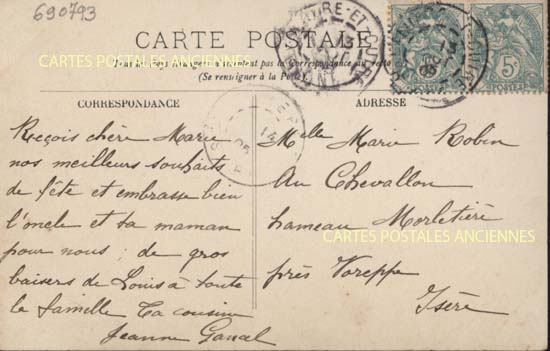 690793
CARTE POSTALE
Tous les pays étrangers n'acceptent pas la Correspondance au recto
(Se renseigner à la Poste).
CORRESPONDANCE
Reçois chère Marie
nos meilleurs souhaits
de fête et embrasse bien
l'oncle et ta maman
pour nous ; de gros
baisers de Louis à toute
la famille Ta cousine
Jeanne
ADRESSE
Melle Marie Robin
Au Chevallon
hameau Morletière
près Voreppe
Isère
5c
POSTES
CARTES POSTALES ANCIENNES
CARTES POSTALES ANCIENNES